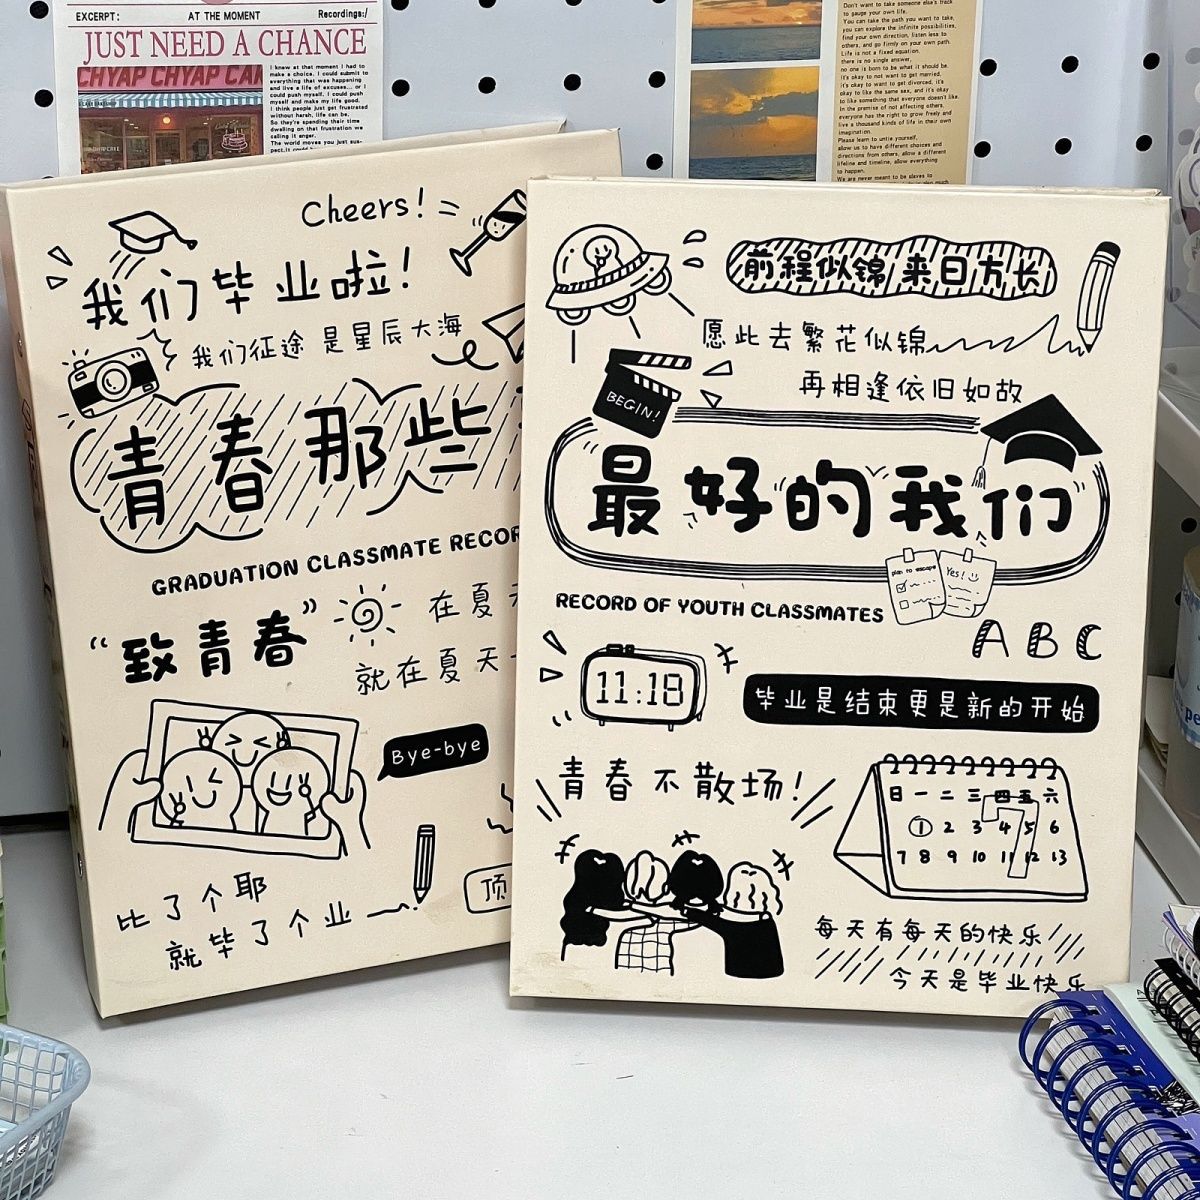 EXCERPT: AT THE MOMENT Recordings:/
JUST NEED A CHANCE
CHYAP CHYAP CAK
I knew at that moment I had to
make a choice. I could submit to
everything that was happening
and live a life of excuses... or I
could push myself. I could push
myself and make my life good.
I think people just get frustrated
without harsh, life can be.
So they're spending their time
dwelling on that frustration we
calling it anger.
The world moves you just sus-
Don't want to take someone else's track
to gauge your own life.
You can take the path you want to take,
you can explore the infinite possibilities,
find your own direction, listen less to
others, and go firmly on your own path.
Life is not a fixed equation.
there is no single answer,
no one is born to be what it should be.
It's okay to not want to get married,
it's okay to want to get divorced, it's
okay to like the same sex, and it's okay
to like something that everyone doesn't like.
In the premise of not affecting others,
everyone has the right to grow freely and
live a thousand kinds of life in their own
imagination.
Please learn to untie yourself.
allow us to have different choices and
directions from others, allow a different
lifeline and timeline, allow everything
to happen.
We are never meant to be slaves to
Cheers!
我们毕业啦!
我们征途是星辰大海
青春那些
GRADUATION CLASSMATE RECOR
“致青春”
在夏天
就在夏天
Bye-bye
比了个耶
就毕了个业
顶
前程似锦 来日方长
愿此去繁花似锦
再相逢依旧如故
BEGIN!
最好的我们
plan to escape
Yes!
RECORD OF YOUTH CLASSMATES
ABC
11:18
毕业是结束更是新的开始
青春不散场!
日 一 二 三 四 五 六
1 2 3 4 5 6
7 8 9 10 11 12 13
每天有每天的快乐
今天是毕业快乐